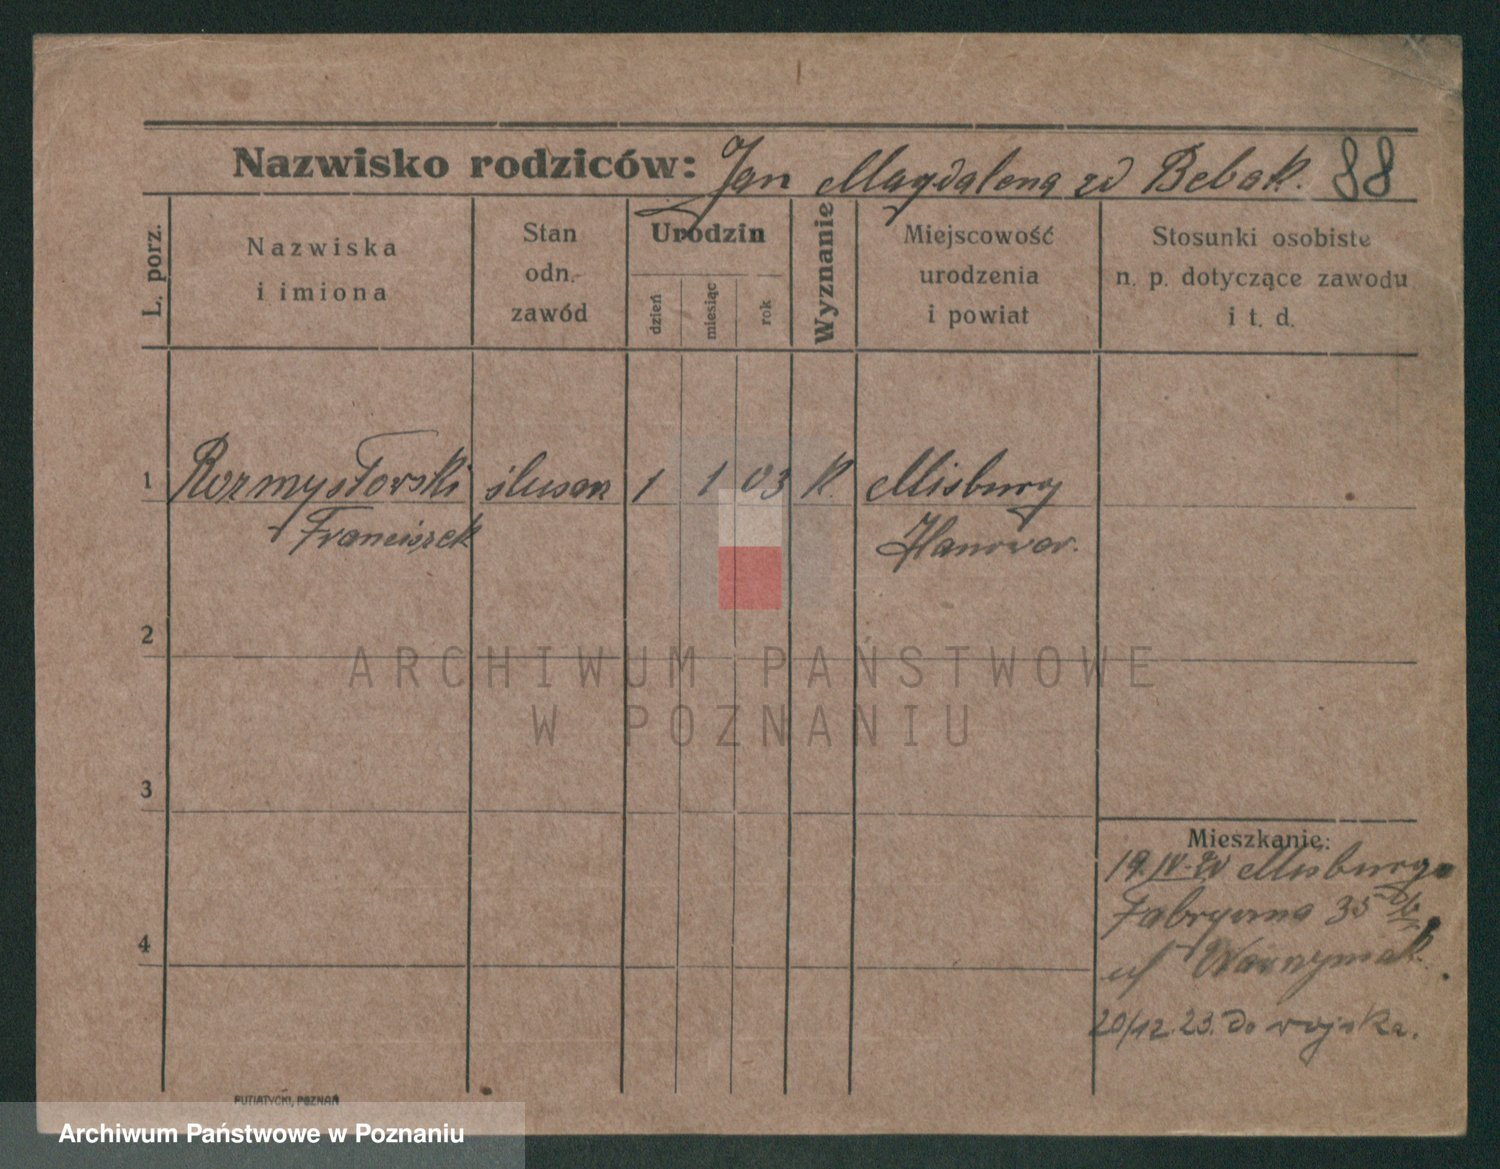 Nazwisko rodziców: Jan Magdalena zd Bebak. 88
L. porz.
Nazwiska
i imiona
Stan
odn.
zawód
Urodzin
dzień
miesiąc
rok
Wyznanie
Miejscowość
urodzenia
i powiat
Stosunki osobiste
n. p. dotyczące zawodu
i t. d.
1 Rozmysłowski ślusarz 1 1 03 k. Misburg
Franciszek Hanower.
2
ARCHIWUM PAŃSTWOWE
W POZNANIU
3
Mieszkanie:
19. IV. Misburga
Fabryczna 35
4
u/
20/12.23. do wojska.
PUTIATYCKI, POZNAŃ
Archiwum Państwowe w Poznaniu